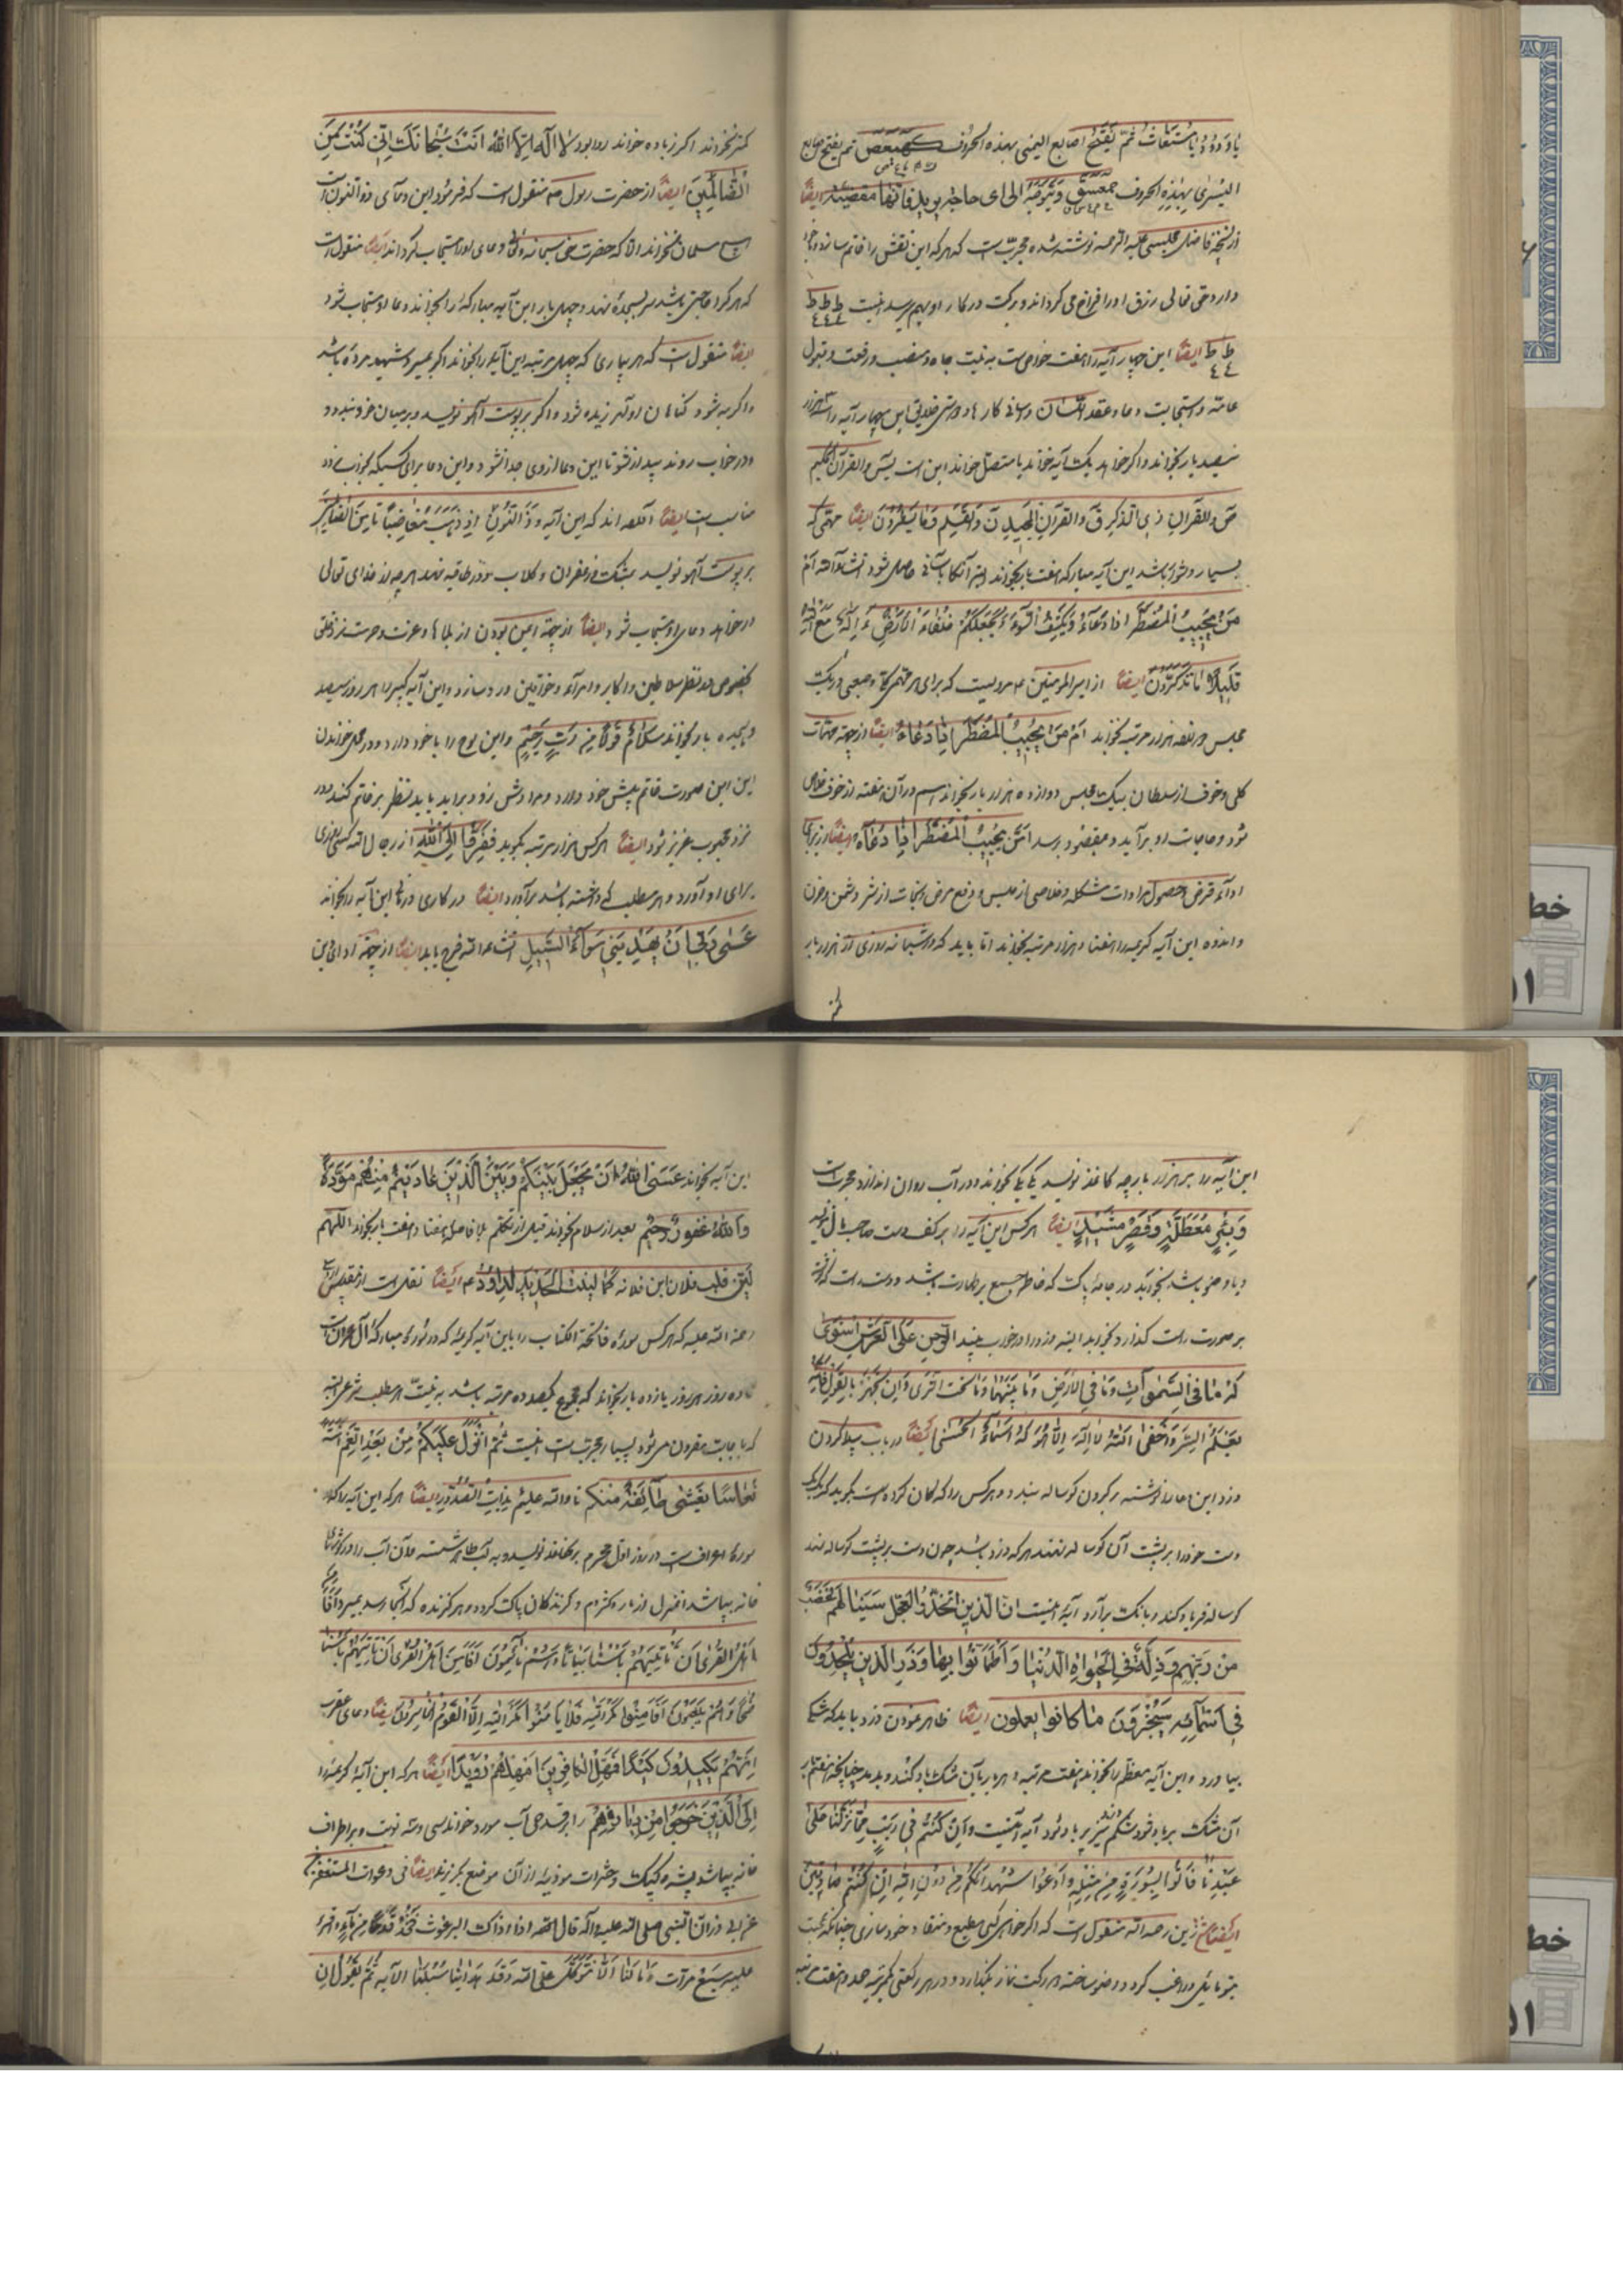 یا ودود یا مستغاث ثم یفتح اصابع الیمنی بهذه الحروف کهیعص ثم یفتح اصابع
الیسری بهذه الحروف حمعسق و یتوجه الی ای حاجة یرید فانها مقضیة ایضاً
از نسخهٔ فاضل مجلسی علیه الرحمه نوشته شده مجربست که هر که این نقش را خاتم سازد و با خود
دارد حق تعالی رزق او را فراخ می گرداند و برکت در کار او بهم رسد اینست ط ط ط
ط ط ایضاً این چهار آیه را هفت خواص است به نیت جاه و منصب و رفعت و قبول
عامه و استجابت دعا و عقد اللسان و کارها و خلایق این چهار آیه را
سیصد بار بخواند و اگر خواهد یک آیه خواند یا متصل خواند این است یس والقرآن الحکیم
ص والقرآن ذی الذکر ق والقرآن المجید ن والقلم وما یسطرون ایضاً مهمی که
بسیار دشوار باشد این آیه مبارکه هفت بار بخواند البته آن کار بآسانی حاصل شود انشاءالله ام
من یجیب المضطر اذا دعاه ویکشف السوء ویجعلکم خلفاء الارض ءاله مع الله
قلیلا ما تذکرون ایضاً از امیرالمؤمنین ع مرویست که برای هر مهم کلی و صعبی در یک
مجلس هزار مرتبه بخواند ام من یجیب المضطر اذا دعاه ایضاً از جهة مهمات
کلی و خوف از سلطان بیک مجلس دوازده هزار بار بخواند در آن هفته از خوف خلاص
شود و حاجات او برآید و بمقصود برسد امن یجیب المضطر اذا دعاه ایضاً از برای
اداء قرض و حصول مرادات مشکله و خلاصی از حبس و دفع مرض و نجات از شر دشمن و حزن
و اندوه این آیه کریمه را هفتاد هزار مرتبه بخواند اما باید که در شبانه روزی از هزار بار
کمتر نخواند اگر زیاده خواند روا بود لا اله الا الله انت سبحانک انی کنت من
الظالمین ایضاً از حضرت رسول ص منقول است که فرمود این دعای ذوالنون است
هیچ مسلمان نخواند الا که حضرت حق سبحانه و تعالی دعای او را مستجاب گرداند ایضاً منقول است
که هر که را حاجتی باشد سر بسجده نهد و چهل بار این آیه مبارکه را بخواند دعا او مستجاب شود
ایضاً منقول است که هر بیماری که چهل مرتبه این آیه را بخواند اگر بمیرد شهید مرده باشد
و اگر به شود گناهان او آمرزیده شود و اگر بر پوست آهو نویسد و بر میان خود بندد و
در خواب روند بیدار نشود تا این دعا از وی جدا نشود و این دعا برای کسیکه
مناسب است ایضاً گفته اند که این آیه و ذا النون اذ ذهب مغاضباً تا من الظالمین
بر پوست آهو نویسد بمشک و زعفران و گلاب و در طاقیه نهد هر چه از خدای تعالی
خواهد دعای او مستجاب شود ایضاً از جهة ایمن بودن از بلاها و عزت و حرمت نزد خلق
بخصوص در نظر سلاطین و اکابر و امراء و خواتین ورد سازد و این آیه کبیر را هر روز سیصد
و هیجده بار بخواند سلام قولا من رب رحیم و این لوح را با خود دارد و در محل خواندن
این صورت خاتم پیش خود دارد و مرادش زود برآید باید نظر بر خاتم کند و در
نزد محبوب عزیز شود ایضاً هر کس هزار مرتبه بگوید ففروا الی الله از رجال الله کسی
برای او آورد و هر مطلب که داشته باشد برآورد ایضاً در کاری درماند این آیه را بخواند
عسی ربی ان یهدینی سواء السبیل انشاءالله فرج یابد ایضاً از جهة ادای دین
این آیه را بر هزار پارچه کاغذ نویسد یک یک بخواند و در آب روان اندازد مجربست
و بئر معطلة وقصر مشید ایضاً هر کس این آیه را بر کف دست
و با وضو باشد بخوابد در جامهٔ پاک که خاطر جمع بر طهارت باشد و دست
بر صورت راست گذارد و بخوابد البته دزد را در خواب بیند الرحمن علی العرش استوی
له ما فی السموات وما فی الارض وما بینهما وما تحت الثری وان تجهر بالقول فانه
یعلم السر واخفی الله لا اله الا هو له الاسماء الحسنی ایضاً در باب پیدا کردن
دزد این دعا را نوشته بر گردن گوساله بندد و هر کس را که گمان کرده است بگوید که
دست خود را بر پشت آن گوساله نهند هر که دزد باشد چون دست بر پشت گوساله نهد
گوساله فریاد کند و بانگ برآرد آیه اینست ان الذین اتخذوا العجل سینالهم غضب
من ربهم وذلة فی الحیواة الدنیا واطمأنوا بها وذر الذین یلحدون
فی اسمائه سیجزون ما کانوا یعملون ایضاً ظاهر نمودن دزد باید که مشکی
بیاورد و این آیه معظم را بخواند هفت مرتبه هر بار بآن مشک باد کند و بدمد چنانچه هفتم بار
آن مشک پر باد شود شکم دزد نیز پر باد شود آیه اینست وان کنتم فی ریب مما نزلنا علی
عبدنا فأتوا بسورة من مثله وادعوا شهداءکم من دون الله ان کنتم صادقین
ایضاً شیخ زین رحمه الله منقول است که اگر خواهی کسی مطیع و منقاد خود سازی چنانکه محبت
بتو مایل و راغب گردد وضو ساخته دو رکعت نماز بگذارد و در هر رکعتی یکمرتبه حمد و هفت مرتبه
این آیه بخواند عسی الله ان یجعل بینکم وبین الذین عادیتم منهم مودة
والله غفور رحیم بعد از سلام نماز قبل از تکلم بلافاصله هفتاد و هفت بار بخواند اللهم
لین قلب فلان ابن فلانه کما لینت الحدید لداود ع ایضاً نقل است از
رحمة الله علیه که هر کس سوره فاتحة الکتاب را با این آیه کریمه که در سوره مبارکهٔ آل عمران است
تا ده روز هر روز یازده بار بخواند که مجموع یکصد و ده مرتبه باشد به نیت هر مطلب شرعی البته
که باجابت مقرون می شود بسیار مجربست اینست ثم انزل علیکم من بعد الغم امنة
نعاسا یغشی طائفة منکم تا والله علیم بذات الصدور ایضاً هر که این آیه را که در
سورهٔ اعراف است در روز اول محرم بر کاغذ نویسد و به آب طاهر شسته و آن آب را در گوشهای
خانه بپاشد آن منزل از مار و کژدم و گزندگان پاک گردد و هر گزنده که آنجا رسد بمیرد افأمن
اهل القری ان یأتیهم بأسنا بیاتاً وهم نائمون اوامن اهل القری ان یأتیهم بأسنا
ضحی وهم یلعبون افأمنوا مکر الله فلا یأمن مکر الله الا القوم الخاسرون ایضاً دعای عقرب
انهم یکیدون کیداً فمهل الکافرین امهلهم رویداً ایضاً هر که این آیهٔ کریمه را
الی الذین خرجوا من دیارهم را بر قدحی آب خواند سی و سه نوبت و بر اطراف
خانه بپاشد پشه و کیک و حشرات موذیه از آن موضع بگریزند ایضاً فی دعوات المستغفری
عن ابی ذر ان النبی صلی الله علیه وآله قال اذا آذاک البرغوث فخذ قدحا من ماء واقرء
علیه سبع مرات وما لنا الا نتوکل علی الله وقد هدانا سبلنا الآیة ثم یقول ان
خط
خط